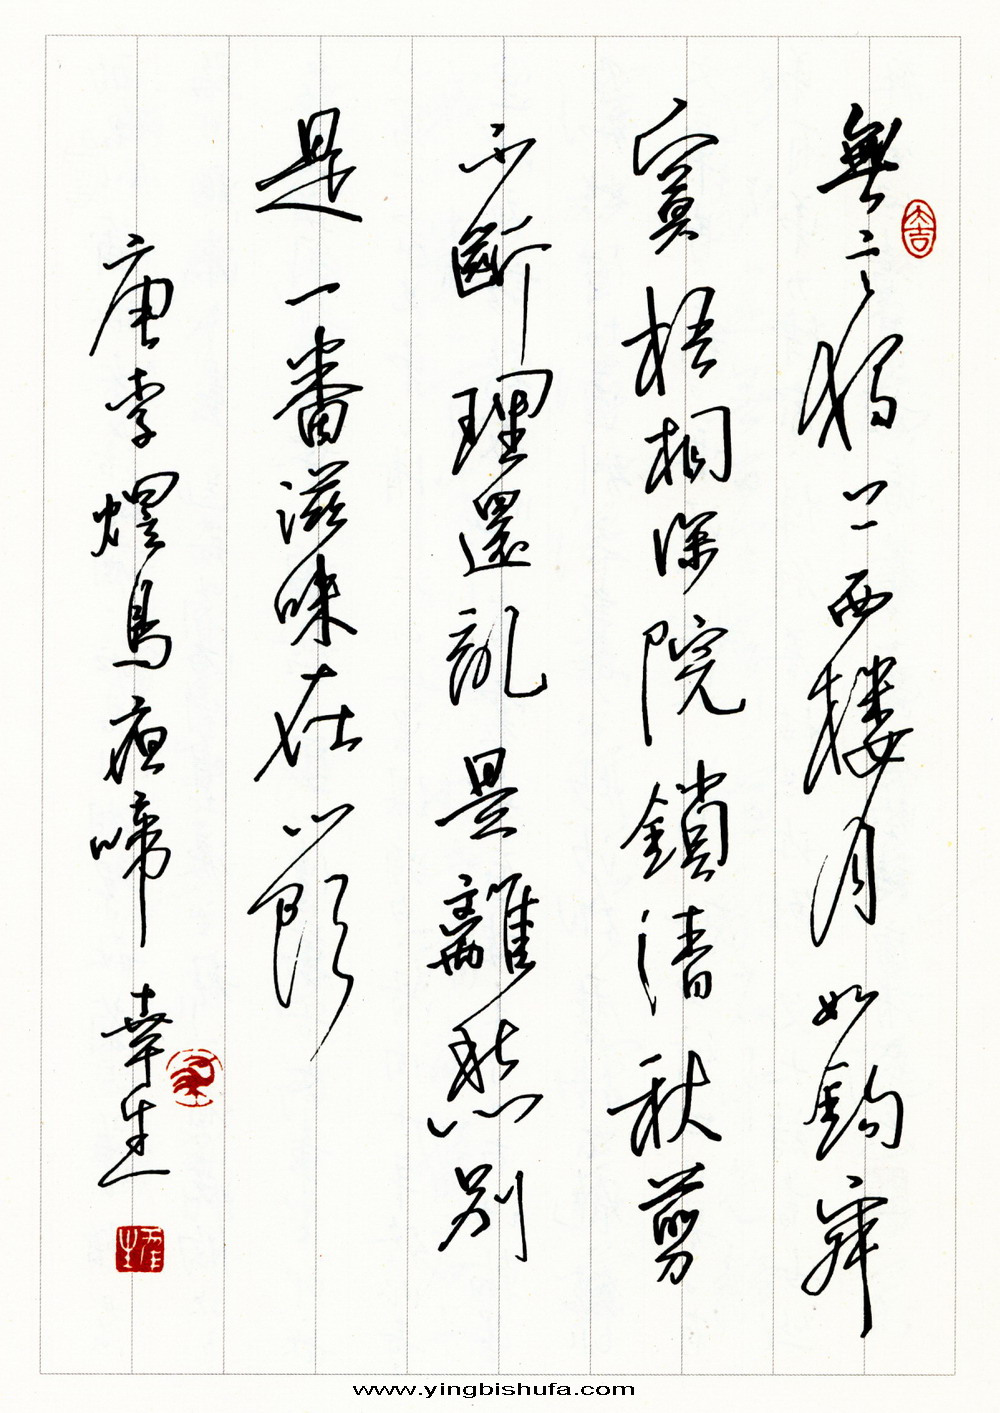 大吉
無言獨上西樓月如鉤寂
寞梧桐深院鎖清秋剪
不斷理還亂是離愁別
是一番滋味在心頭
唐李煜烏夜啼 幸生
www.yingbishufa.com